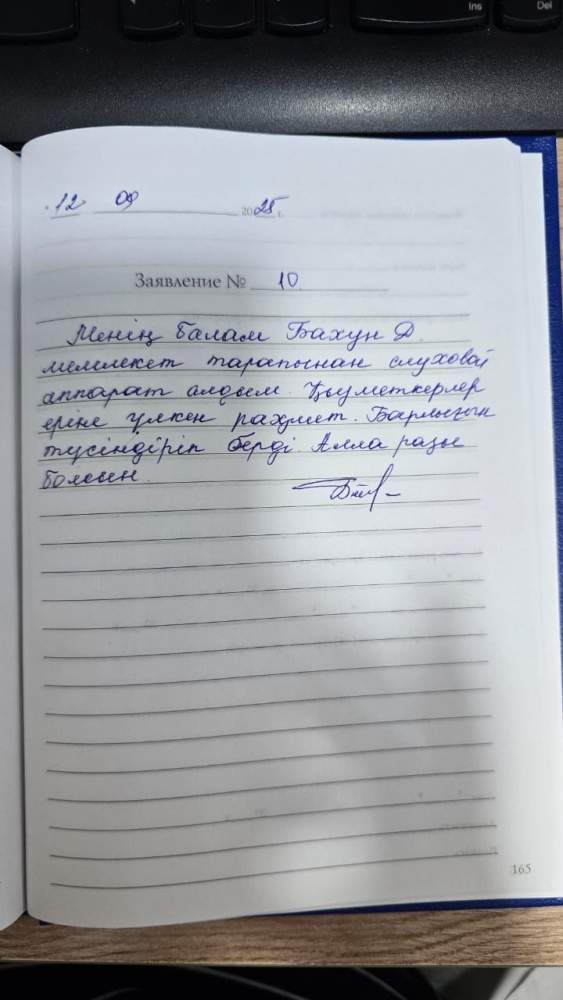 Ins
Del
12 09 2025 г.
Заявление № 10
Менің балам Бахун Д.
мемлекет тарапынан слуховой
аппарат алдым. Қызметкерлер
еріне үлкен рахмет. Барлығын
түсіндіріп берді. Алла разы
болсын.
165